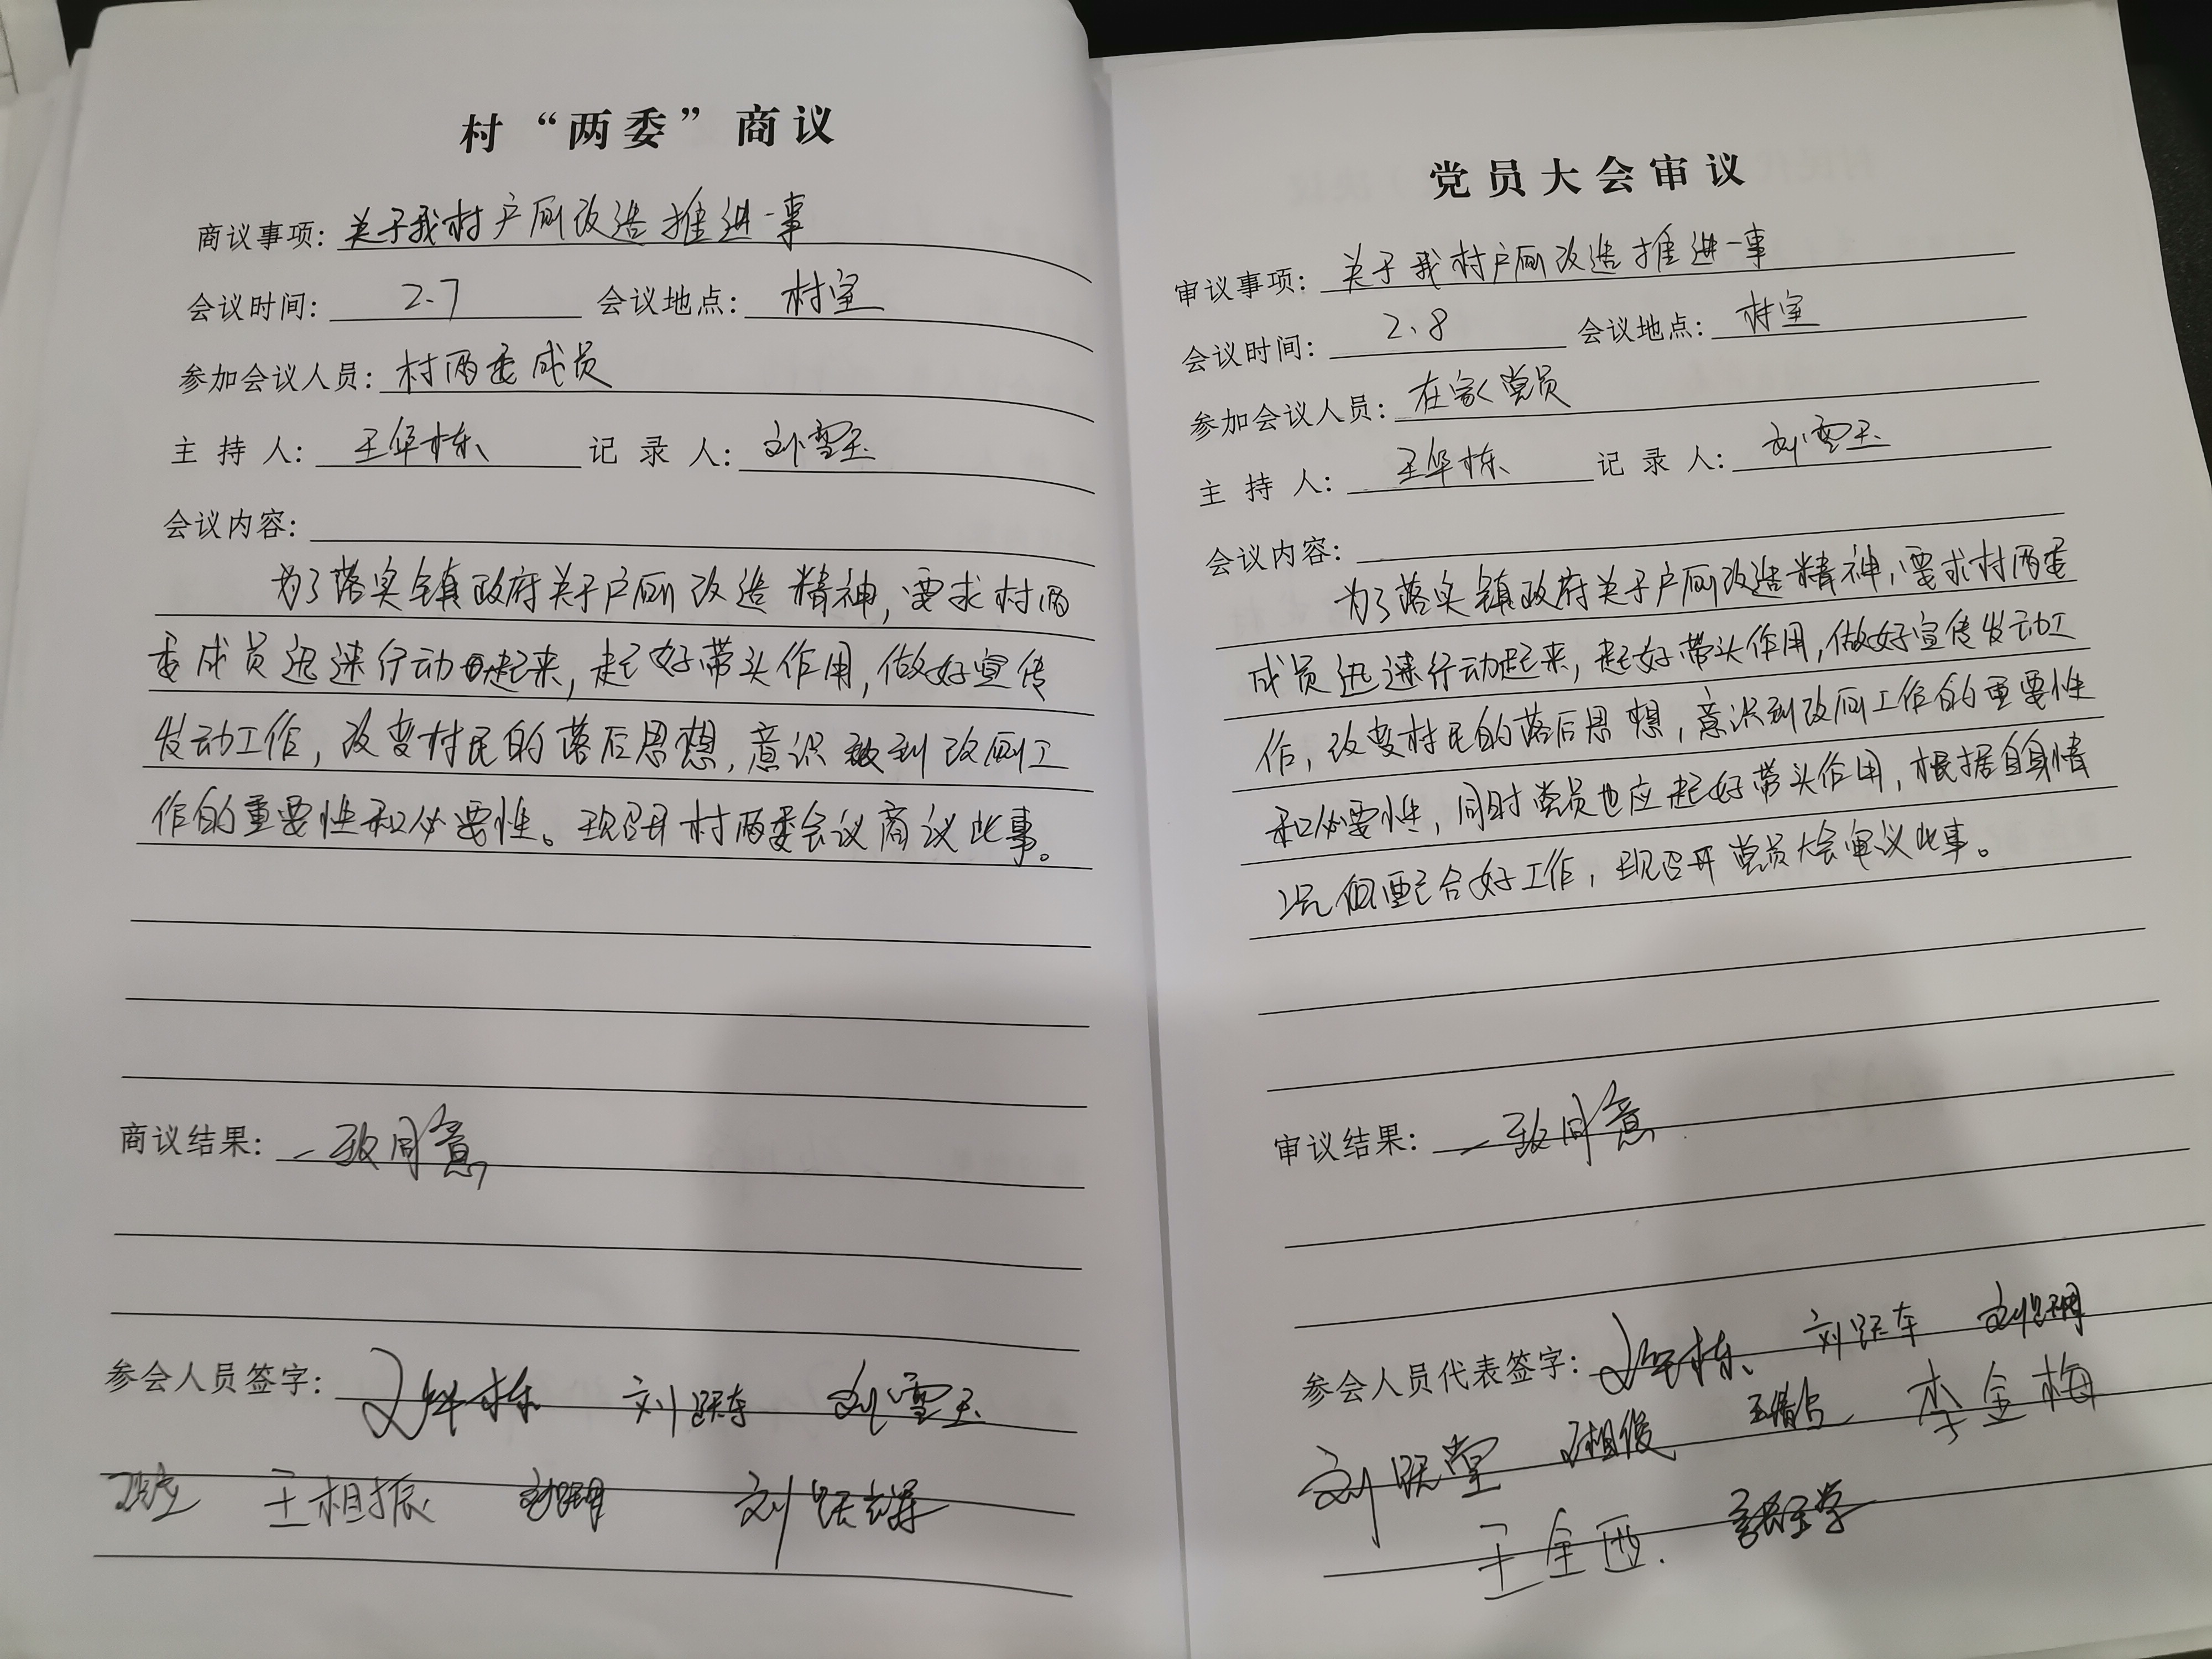 村“两委”商议
商议事项: 关于我村户厕改造推进一事
会议时间: 2.7 会议地点: 村室
参加会议人员: 村两委成员
主持人: 王华栋 记录人: 刘雪玉
会议内容:
为了落实镇政府关于户厕改造精神,要求村两
委成员迅速行动起来,起好带头作用,做好宣传
发动工作,改变村民的落后思想,意识到改厕工
作的重要性和必要性。现召开村两委会议商议此事。
商议结果: 一致同意
参会人员签字: 王华栋 刘跃东 刘雪玉
王相振 刘跃辉
党员大会审议
审议事项: 关于我村户厕改造推进一事
会议时间: 2.8 会议地点: 村室
参加会议人员: 在家党员
主持人: 王华栋 记录人: 刘雪玉
会议内容:
为了落实镇政府关于户厕改造精神,要求村两委
成员迅速行动起来,起好带头作用,做好宣传发动工
作,改变村民的落后思想,意识到改厕工作的重要性
和必要性,同时党员也应起好带头作用,根据自身情
况配合好工作,现召开党员大会审议此事。
审议结果: 一致同意
参会人员代表签字: 王华栋 刘跃东
刘跃堂 王相俊 李金梅
王金西